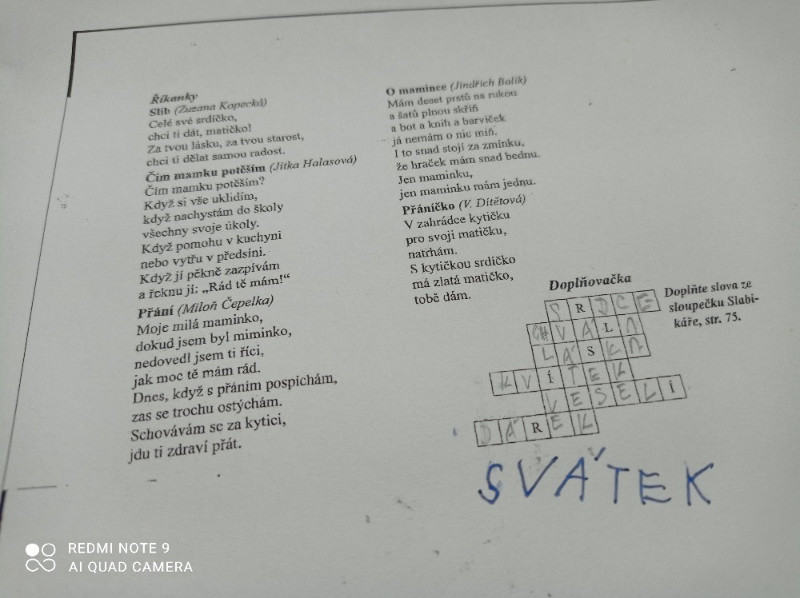 Říkanky
Slib (Zuzana Kopecká)
Celé své srdíčko,
chci ti dát, matičko!
Za tvou lásku, za tvou starost,
chci ti dělat samou radost.
Čím mamku potěším (Jitka Halasová)
Čím mamku potěším?
Když si vše uklidím,
když nachystám do školy
všechny svoje úkoly.
Když pomohu v kuchyni
nebo vytřu v předsíni.
Když jí pěkně zazpívám
a řeknu jí: „Rád tě mám!“
Přání (Miloň Čepelka)
Moje milá maminko,
dokud jsem byl miminko,
nedovedl jsem ti říci,
jak moc tě mám rád.
Dnes, když s přáním pospíchám,
zas se trochu ostýchám.
Schovávám se za kytici,
jdu ti zdraví přát.
O mamince (Jindřich Balík)
Mám deset prstů na rukou
a šatů plnou skříň
a bot a knih a barviček
já nemám o nic míň.
I to snad stojí za zmínku,
že hraček mám snad bednu.
Jen maminku,
jen maminku mám jednu.
Přáníčko (V. Dítětová)
V zahrádce kytičku
pro svoji matičku,
natrhám.
S kytičkou srdíčko
má zlatá matičko,
tobě dám.
Doplňovačka
Doplňte slova ze
sloupečku Slabi-
káře, str. 75.
SRDCE
CHVÁLA
LÁSKA
KVÍTEK
VESELÍ
DÁREK
SVÁTEK
REDMI NOTE 9
AI QUAD CAMERA